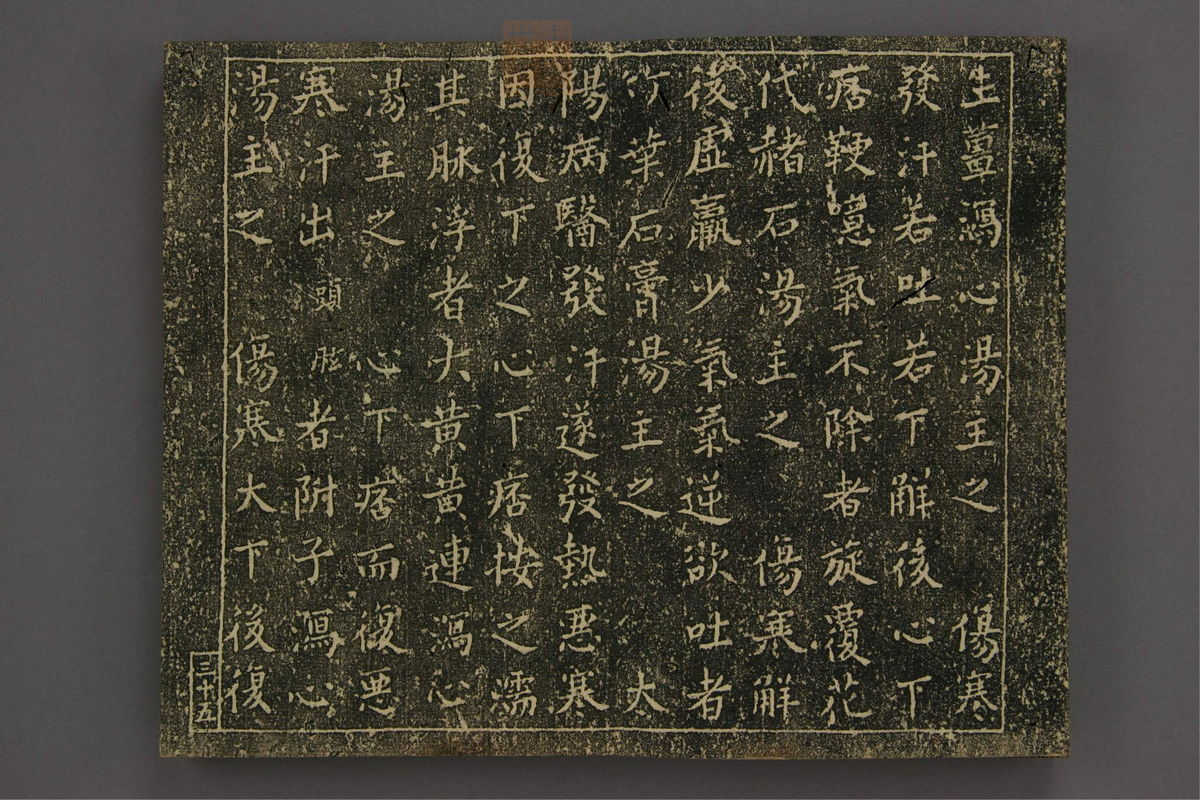 生薑瀉心湯主之　傷寒
發汗若吐若下解後心下
痞鞕噫氣不除者旋覆花
代赭石湯主之　傷寒解
後虛羸少氣氣逆欲吐者
竹葉石膏湯主之　太
陽病醫發汗遂發熱惡寒
因復下之心下痞按之濡
其脉浮者大黄黄連瀉心
湯主之　心下痞而復惡
寒汗出頭眩者附子瀉心
湯主之　傷寒大下後復
三十五